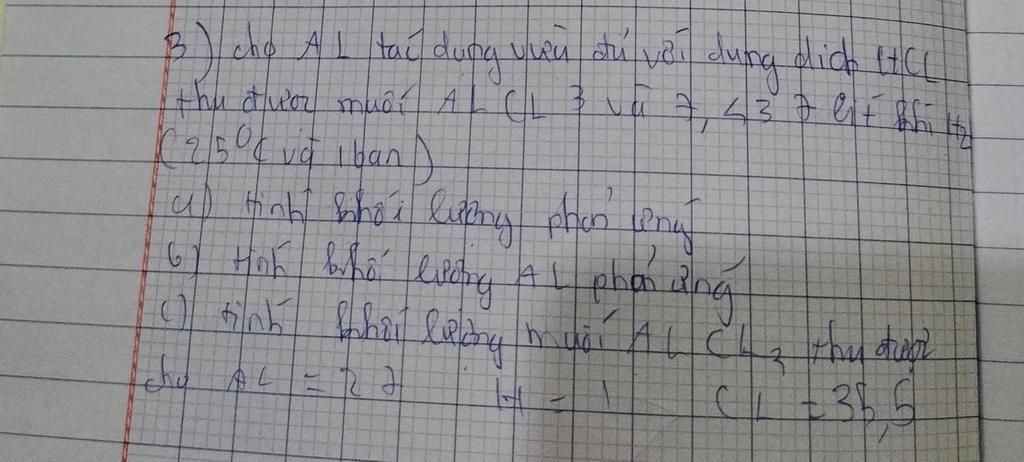 3) cho AL tác dụng vừa đủ với dung dịch HCL
thu được muối AL CL 3 và 7,437 lít khí H2
(25°C và 1 ban)
a) tính khối lượng phản ứng
b) tính khối lượng AL phản ứng
c) tính khối lượng muối AL CL3 thu được
cho AL = 27 H = 1 CL = 35,5